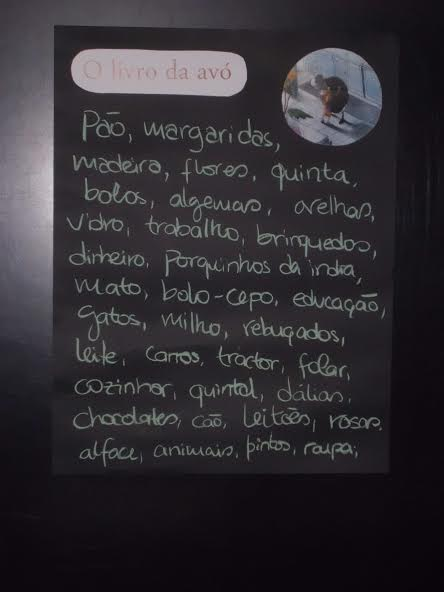 O livro da avó
Pão, margaridas,
madeira, flores, quinta,
bolos, algemas, ovelhas,
vidro, trabalho, brinquedos,
dinheiro, porquinhos da india,
mato, bolo-cepo, educação,
gatos, milho, rebuçados,
leite, carros, tractor, folar,
cozinhar, quintal, dálias,
chocolates, cão, leitões, rosas,
alface, animais, pintos, raupa;